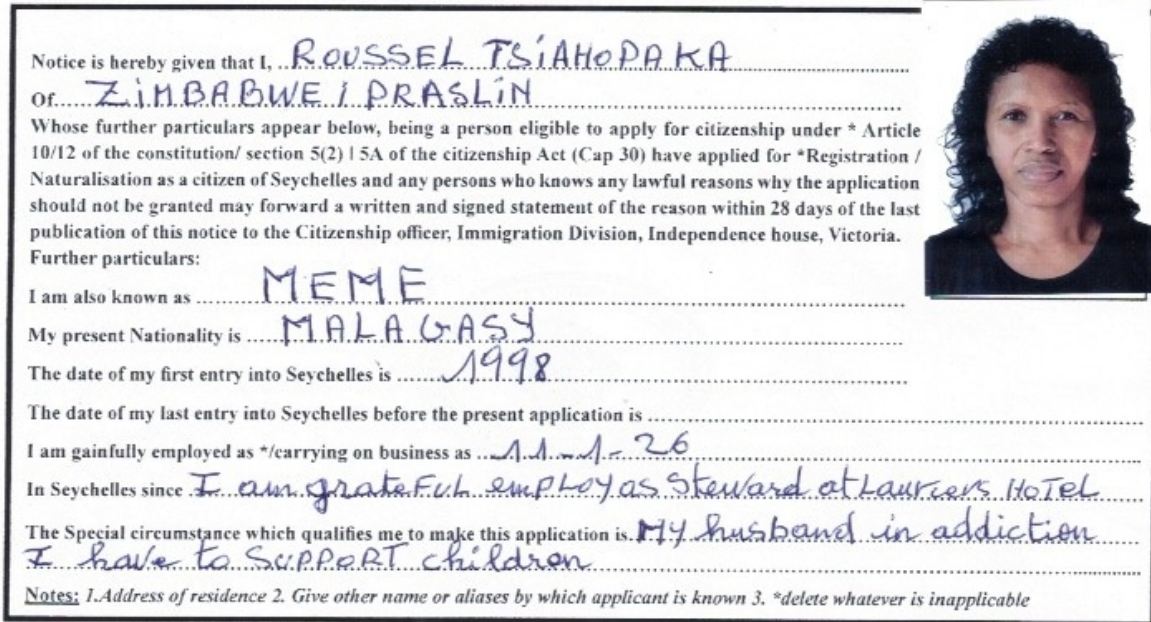 Notice is hereby given that I, ROUSSEL TSiAHOPAKA
Of ZiMBABWE / PRASLiN
Whose further particulars appear below, being a person eligible to apply for citizenship under * Article
10/12 of the constitution/ section 5(2) | 5A of the citizenship Act (Cap 30) have applied for *Registration /
Naturalisation as a citizen of Seychelles and any persons who knows any lawful reasons why the application
should not be granted may forward a written and signed statement of the reason within 28 days of the last
publication of this notice to the Citizenship officer, Immigration Division, Independence house, Victoria.
Further particulars:
I am also known as MEME
My present Nationality is MALAGASY
The date of my first entry into Seychelles is 1998
The date of my last entry into Seychelles before the present application is
I am gainfully employed as */carrying on business as 11-1-26
In Seychelles since I am grateFUL emPLOY as Steward at Lauriers HoTeL
The Special circumstance which qualifies me to make this application is MY husband in addiction
I have to SUPPORT children
Notes: 1.Address of residence 2. Give other name or aliases by which applicant is known 3. *delete whatever is inapplicable